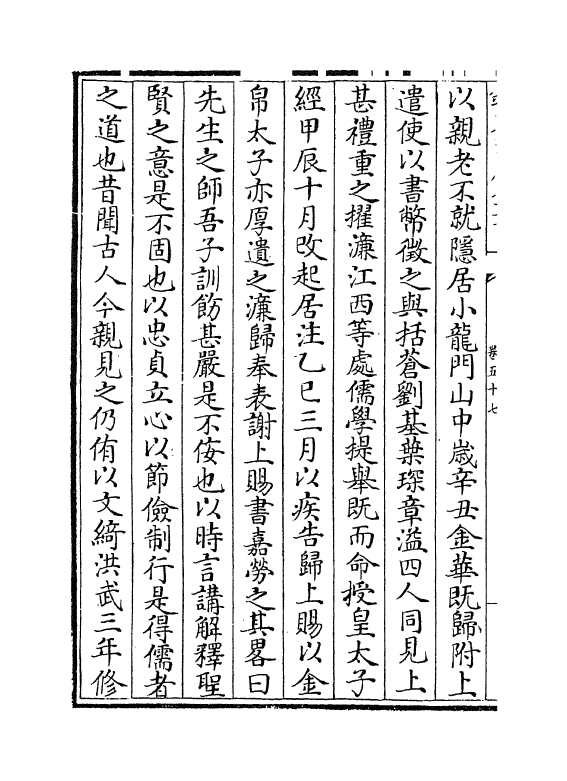 以親老不就隱居小龍門山中歲辛丑金華既歸附上
遣使以書幣徵之與括蒼劉基葉琛章溢四人同見上
甚禮重之擢濂江西等處儒學提舉既而命授皇太子
經甲辰十月改起居注乙巳三月以疾告歸上賜以金
帛太子亦厚遺之濂歸奉表謝上賜書嘉勞之其畧曰
先生之師吾子訓飭甚嚴是不佞也以時言講解釋聖
賢之意是不固也以忠貞立心以節儉制行是得儒者
之道也昔聞古人今親見之仍侑以文綺洪武三年修
卷五十七